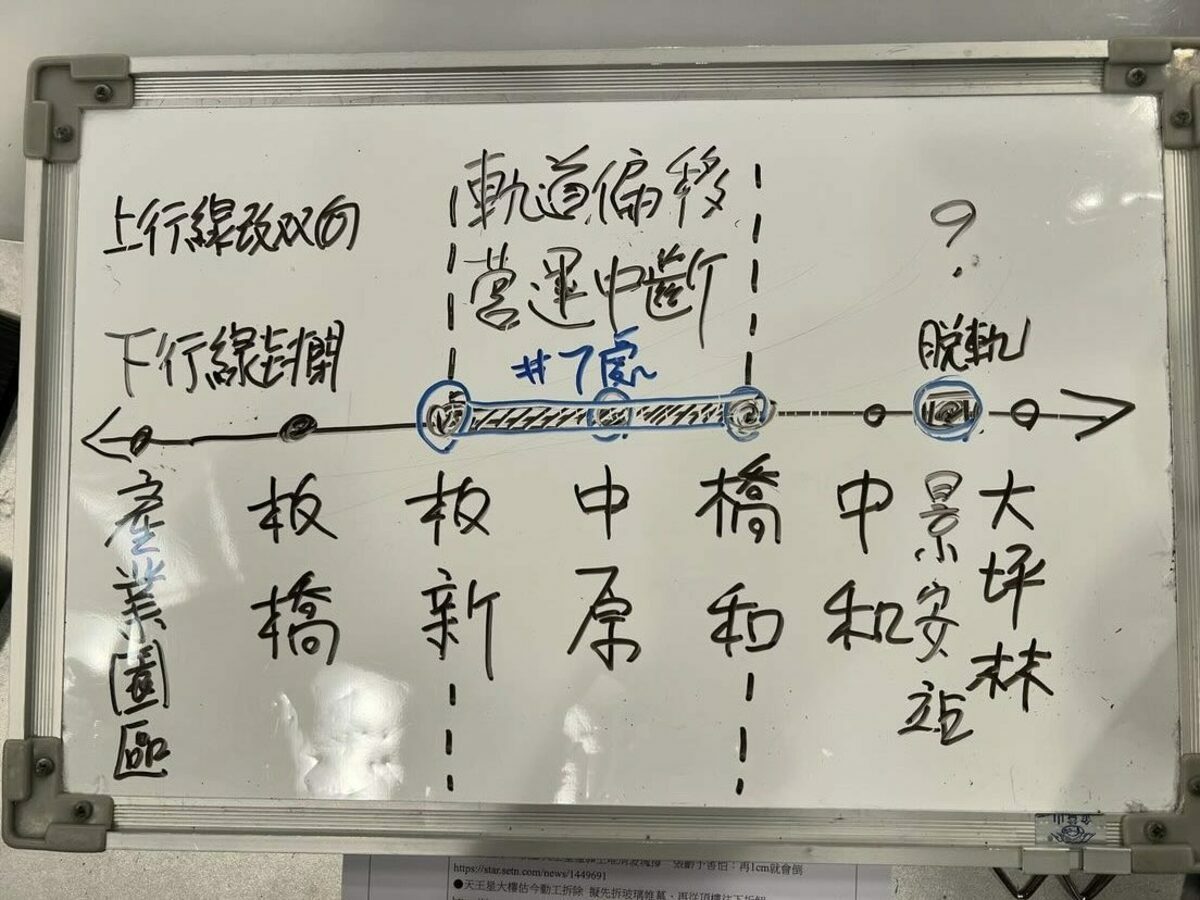 軌道偏移
營運中斷
上行線改双向
下行線封閉
#7處
?
脫軌
產業園區
板橋
板新
中原
橋和
中和
景安站
大坪林
https://star.setn.com/news/1449691
●天王星大樓估今動工拆除 擬先拆玻璃帷幕、再從頂樓往下拆卸